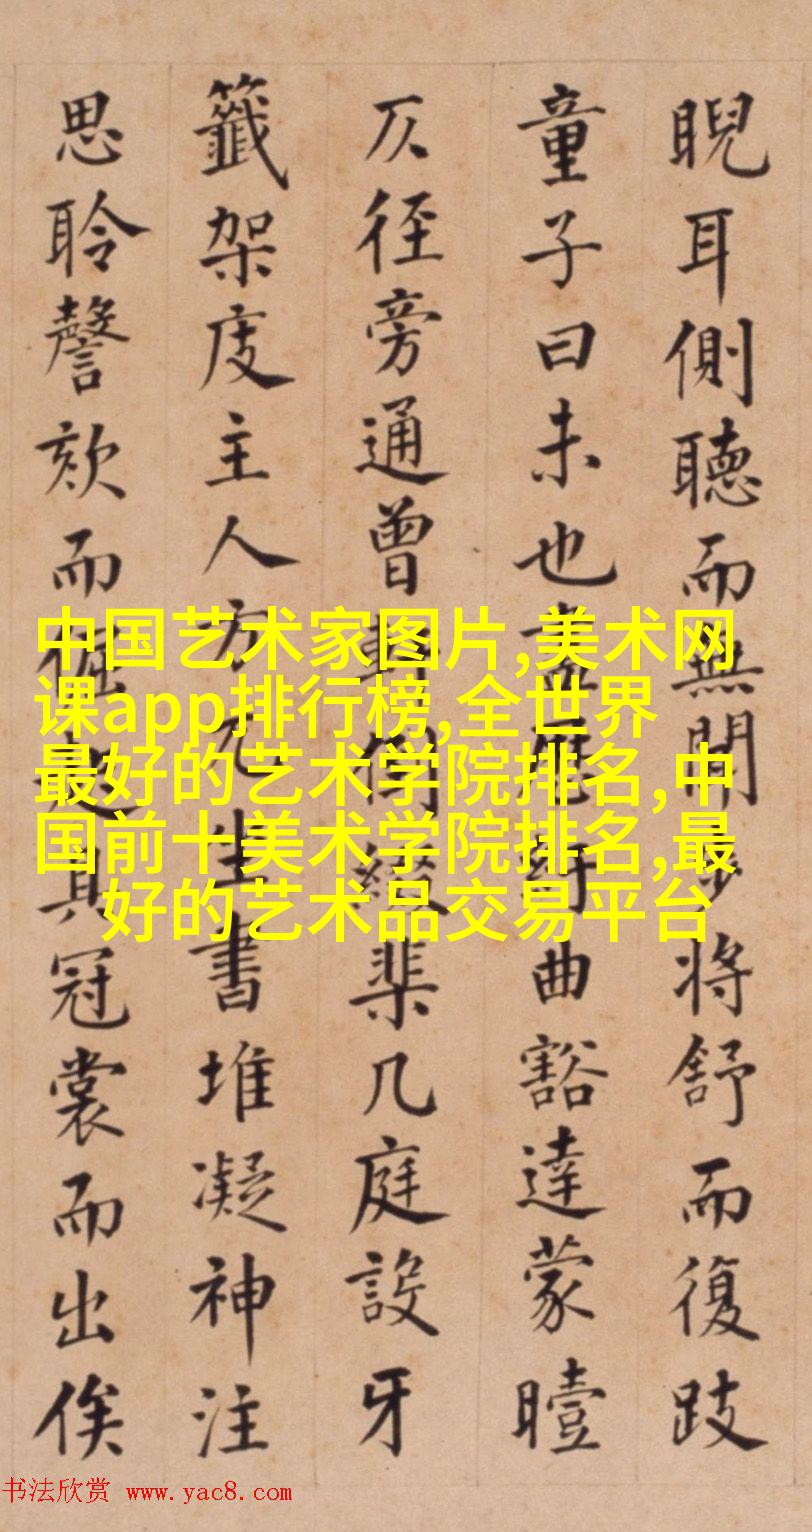 睨耳側聽而無聞步將舒而復跂
童子曰未也紆曲豁達蒙曀
仄徑旁通曾棐几庭設牙
籤架庋主人方兀坐書堆凝神注
思聆謦欬而起具冠裳而出俟
中国艺术家图片,美术网
课app排行榜,全世界
最好的艺术学院排名,中
国前十美术学院排名,最
好的艺术品交易平台
书法欣赏 www.yac8.com